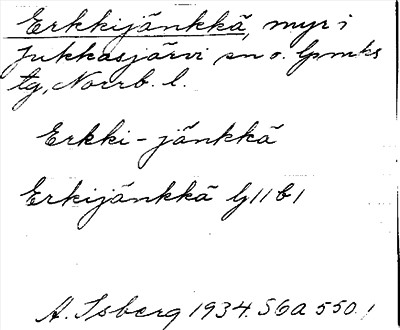 Erkkijänkkä, myr i
Jukkasjärvi sn o. lpmks
tg, Norrb. l.
Erkki-jänkkä
Erkijänkkä G11b1
A. Isberg 1934. S6a 550.1